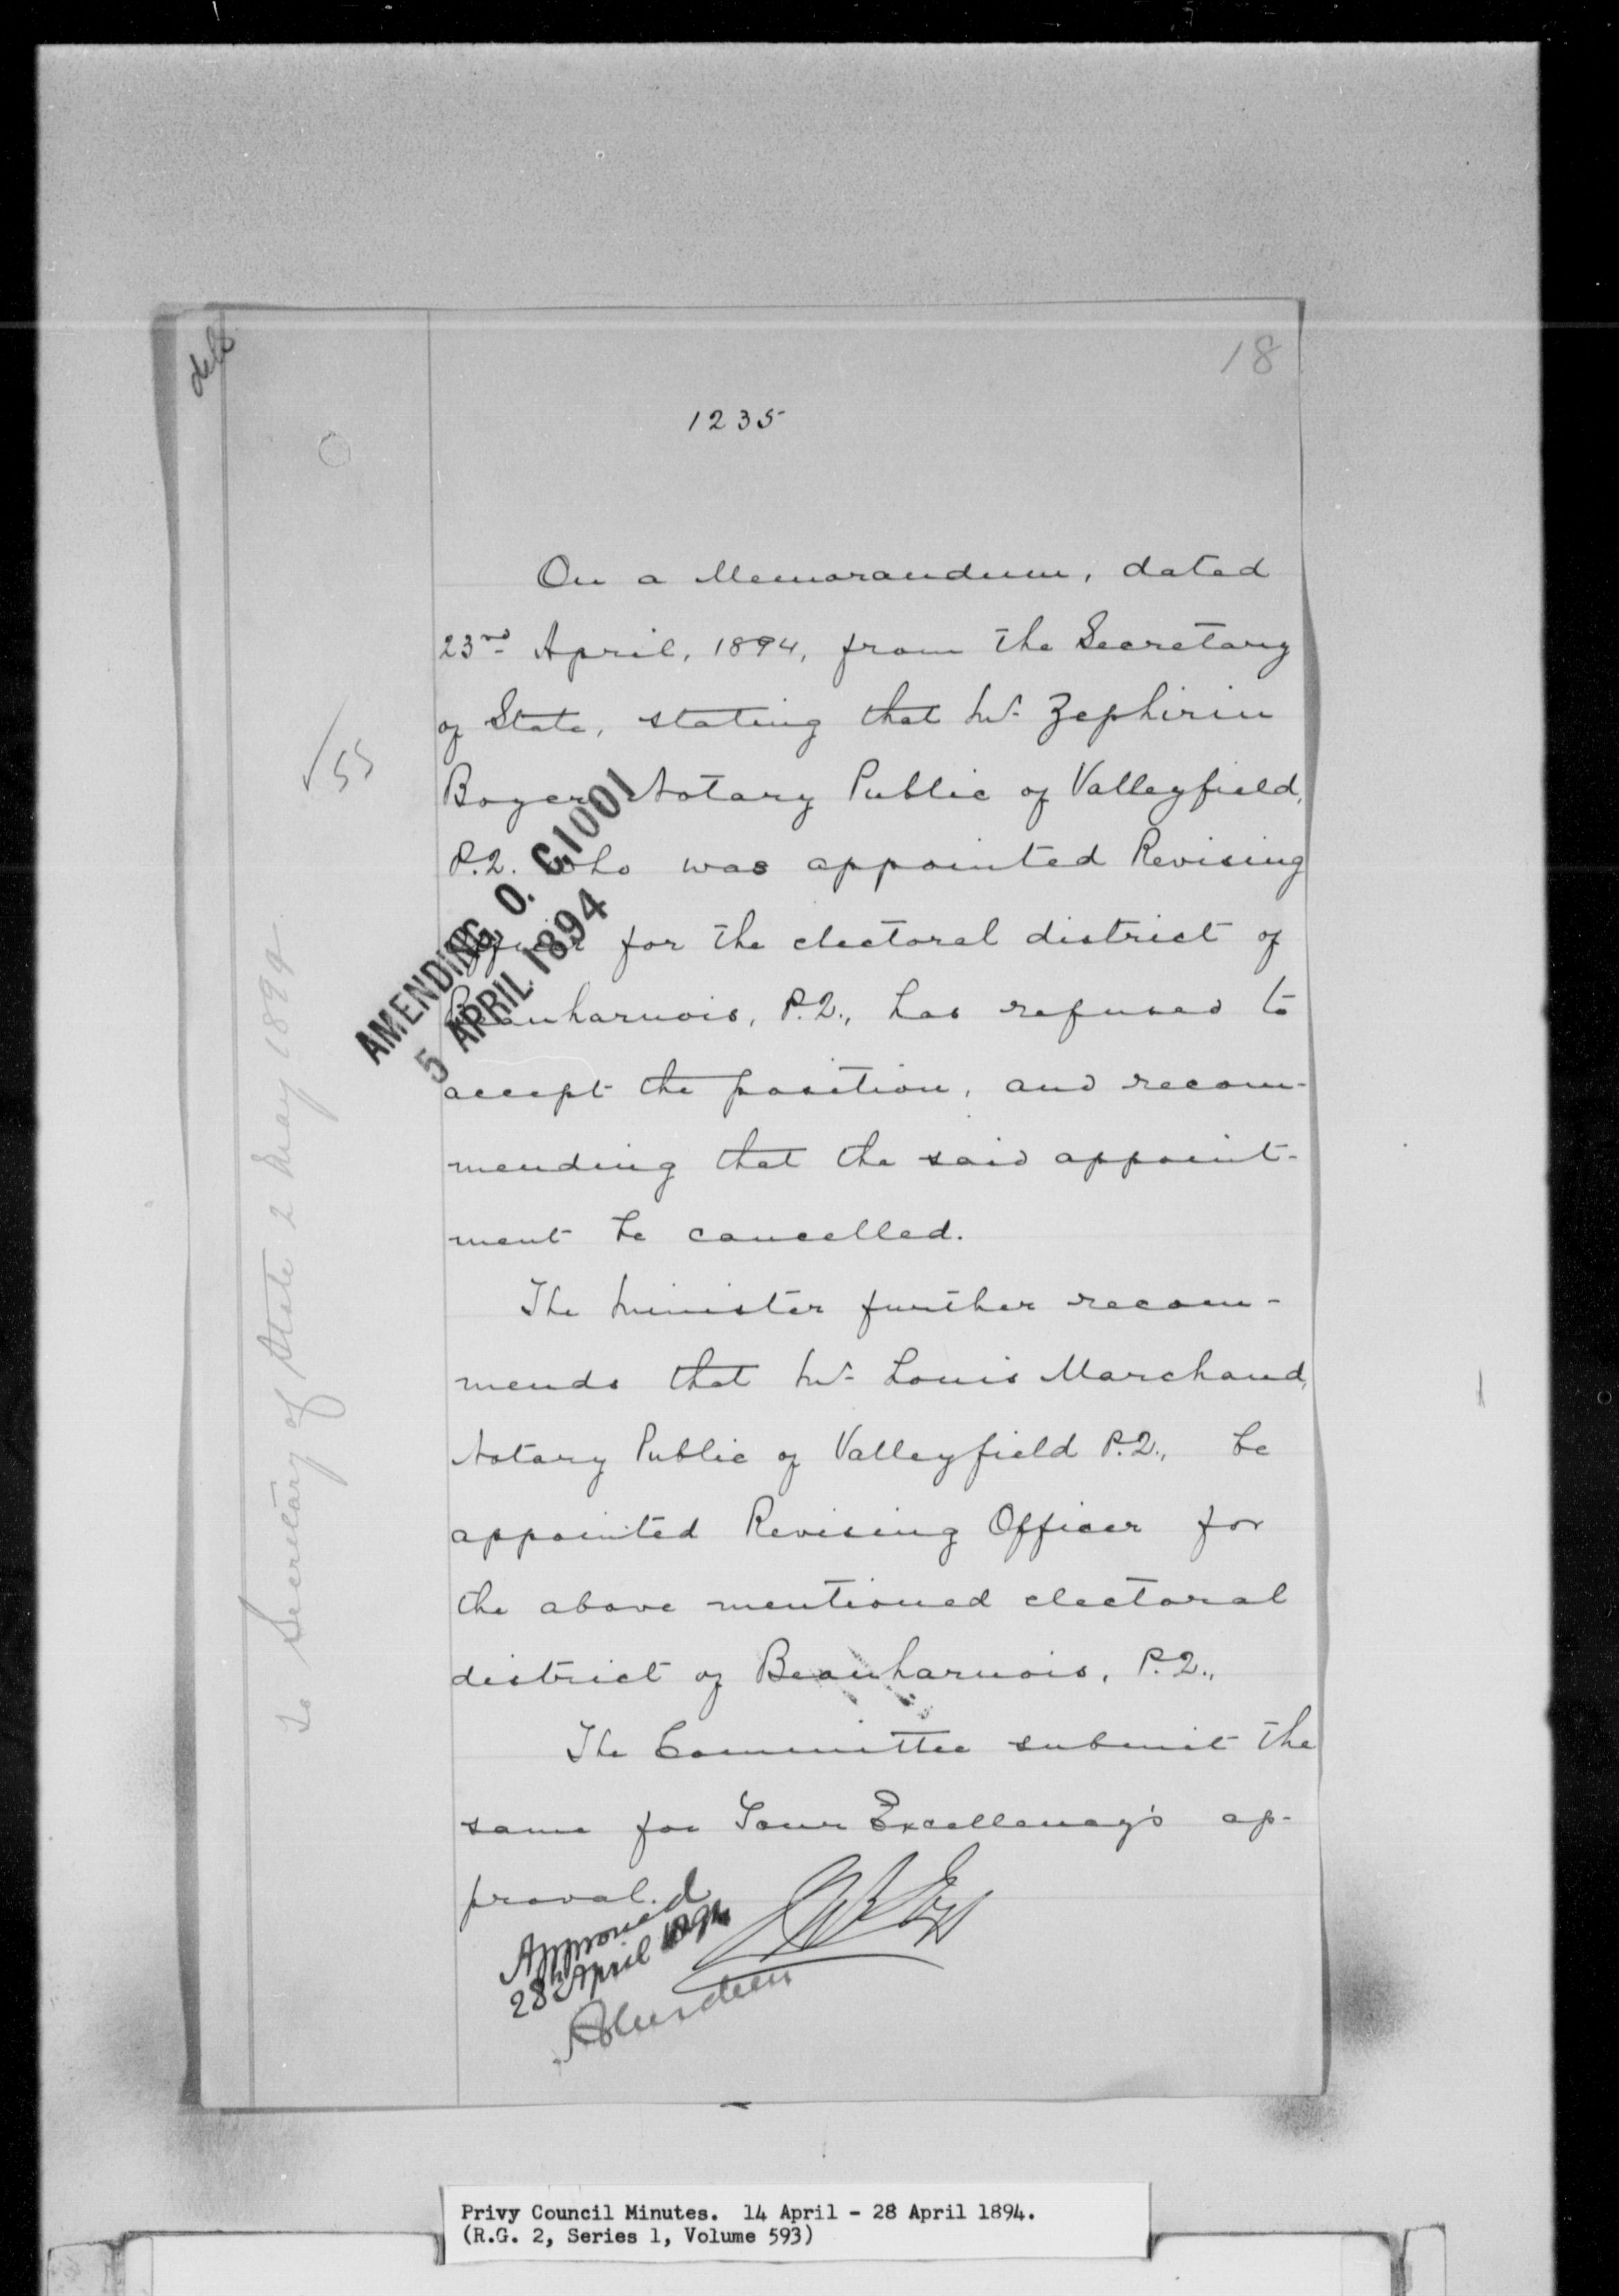 18
1235
On a Memorandum, dated
23rd April, 1894, from the Secretary
of State, stating that Mr. Zephirin
Boyer Notary Public of Valleyfield,
P.Q. who was appointed Revising
Officer for the electoral district of
Beauharnois, P.Q., has refused to
accept the position, and recom-
mending that the said appoint-
ment be cancelled.
The Minister further recom-
mends that Mr. Louis Marchand,
Notary Public of Valleyfield P.Q., be
appointed Revising Officer for
the above mentioned electoral
district of Beauharnois, P.Q.,
The Committee submit the
same for Your Excellency's ap-
proval.
Approved
28th April 1894
Aberdeen
AMENDING O. C. 1001
5 APRIL 1894
55
To Secretary of State 2 May 1894
Privy Council Minutes. 14 April - 28 April 1894.
(R.G. 2, Series 1, Volume 593)